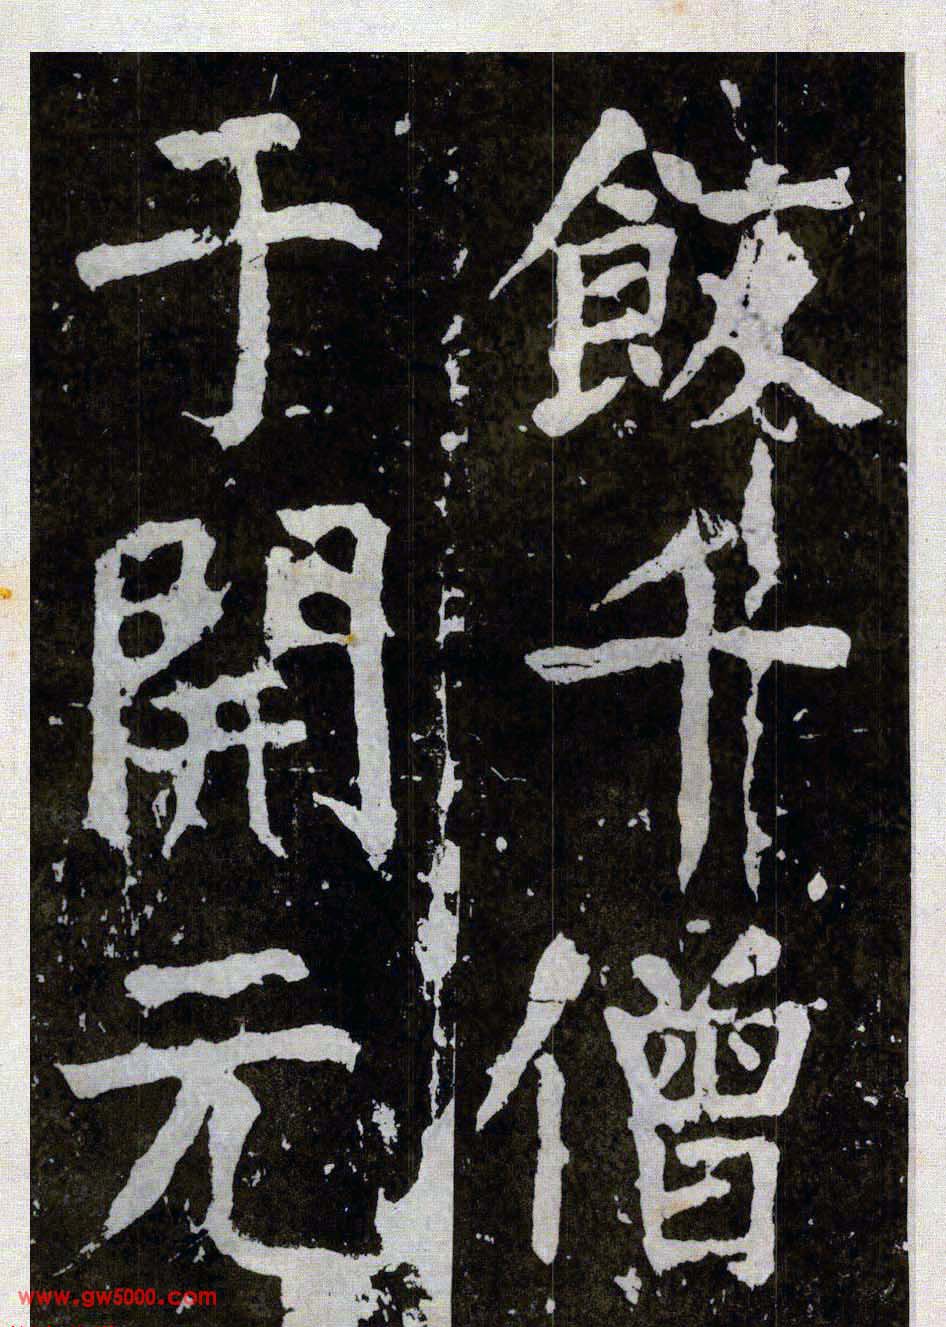 飯千僧
于開元
www.gw5000.com